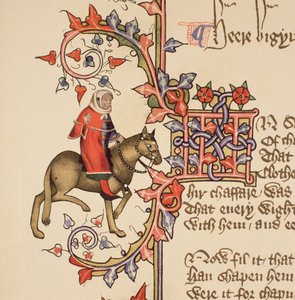 Heere bigyn
IN S
Of ch
That
Clothe
hir chaffare was
That euery wight
With hem / and ee
Now fil it / that
Han shapen hem
Were it for chapm